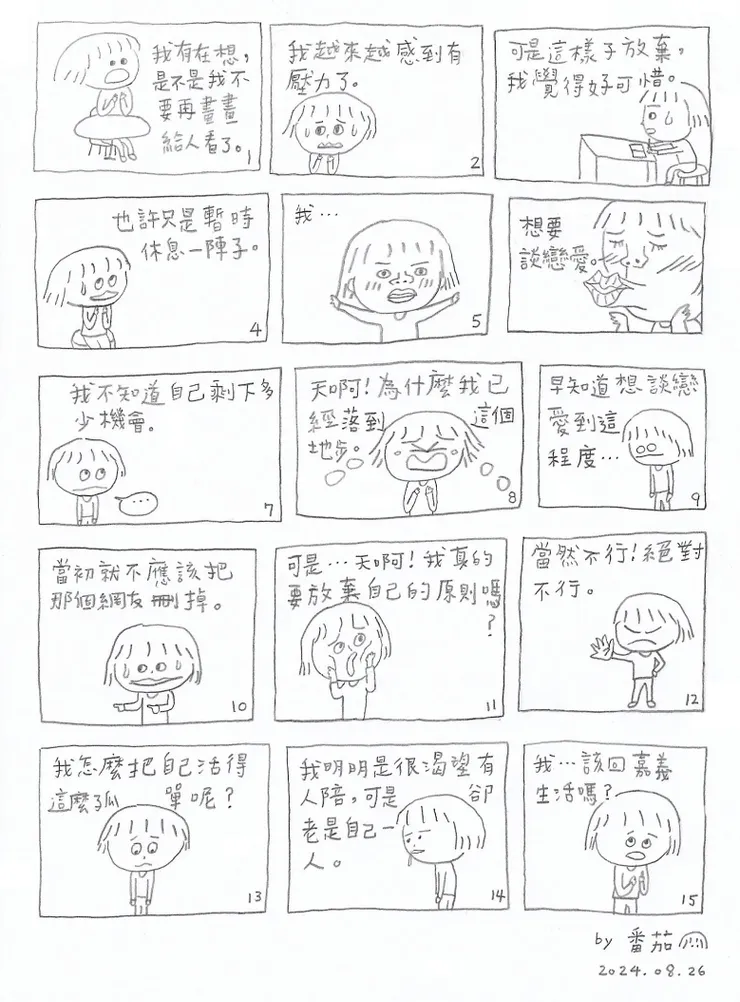 我有在想，
是不是我不
要再畫畫
給人看了。
1
我越來越感到有
壓力了。
2
可是這樣子放棄，
我覺得好可惜。
3
也許只是暫時
休息一陣子。
4
我…
5
想要
談戀愛。
我不知道自己剩下多
少機會。
…
7
天啊！為什麼我已
經落到這個
地步。
8
早知道想談戀
愛到這
程度…
9
當初就不應該把
那個網友刪掉。
10
可是…天啊！我真的
要放棄自己的原則嗎
？
11
當然不行！絕對
不行。
12
我怎麼把自己活得
這麼孤單呢？
13
我明明是很渴望有
人陪，可是卻
老是自己一
人。
14
我…該回嘉義
生活嗎？
15
by 番茄
2024.08.26